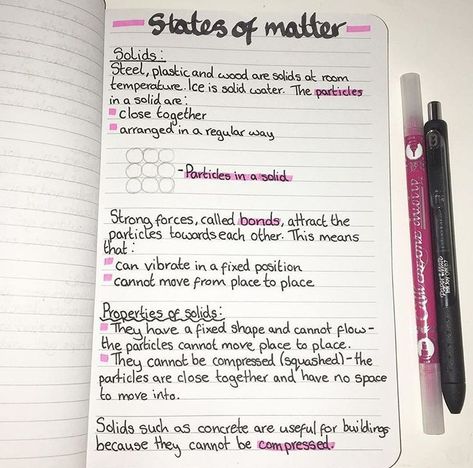 States of matter
Solids:
Steel, plastic and wood are solids at room
temperature. Ice is solid water. The particles
in a solid are:
close together
arranged in a regular way
- Particles in a solid
Strong forces, called bonds, attract the
particles towards each other. This means
that:
can vibrate in a fixed position
cannot move from place to place
Properties of solids:
They have a fixed shape and cannot flow-
the particles cannot move place to place.
They cannot be compressed (squashed)-the
particles are close together and have no space
to move into.
Solids such as concrete are useful for buildings
because they cannot be compressed.